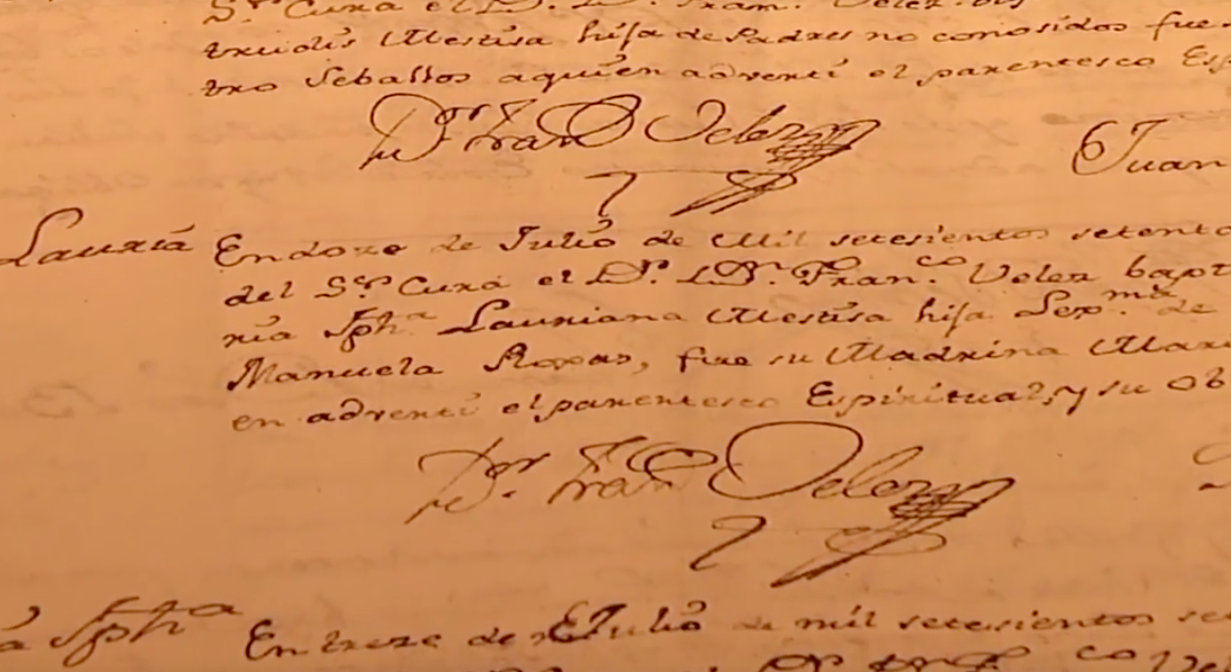 Sr. Cura el D. D. Fran. Velez. bis
trudis Mestisa hija de Padres no conosidos fue
tro Seballos aquien adverti el parentesco Esp
Dr. Franco Velez
6 Juan
Lauria En doze de Julio de Mil setesientos setenta
del Sr. Cura el Dr. Dn. Franco. Velez bapt
ria Jpha Lauriana Mestisa hija Lexma de
Manuela Roxas, fue su Madrina Mari
en adverti el parentesco Espiritual, y su ob
Dr. Franco Velez
a Jpha En treze de Julio de mil setesientos se